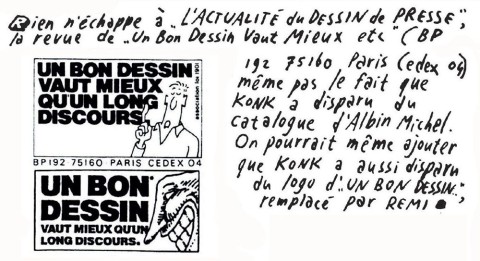 Rien n'échappe à „L'ACTUALITÉ du DESSIN de PRESSE",
la revue de „Un Bon Dessin Vaut Mieux etc" (BP
192 75160 Paris Cedex 04)
même pas le fait que
KONK a disparu du
catalogue d'Albin Michel.
On pourrait même ajouter
que KONK a aussi disparu
du logo d'„UN BON DESSIN",
remplacé par REMI
UN BON DESSIN
VAUT MIEUX
QU'UN LONG
DISCOURS.
association loi 1901
BP192 75160 PARIS CEDEX 04
UN BON
DESSIN
VAUT MIEUX QU'UN
LONG DISCOURS.